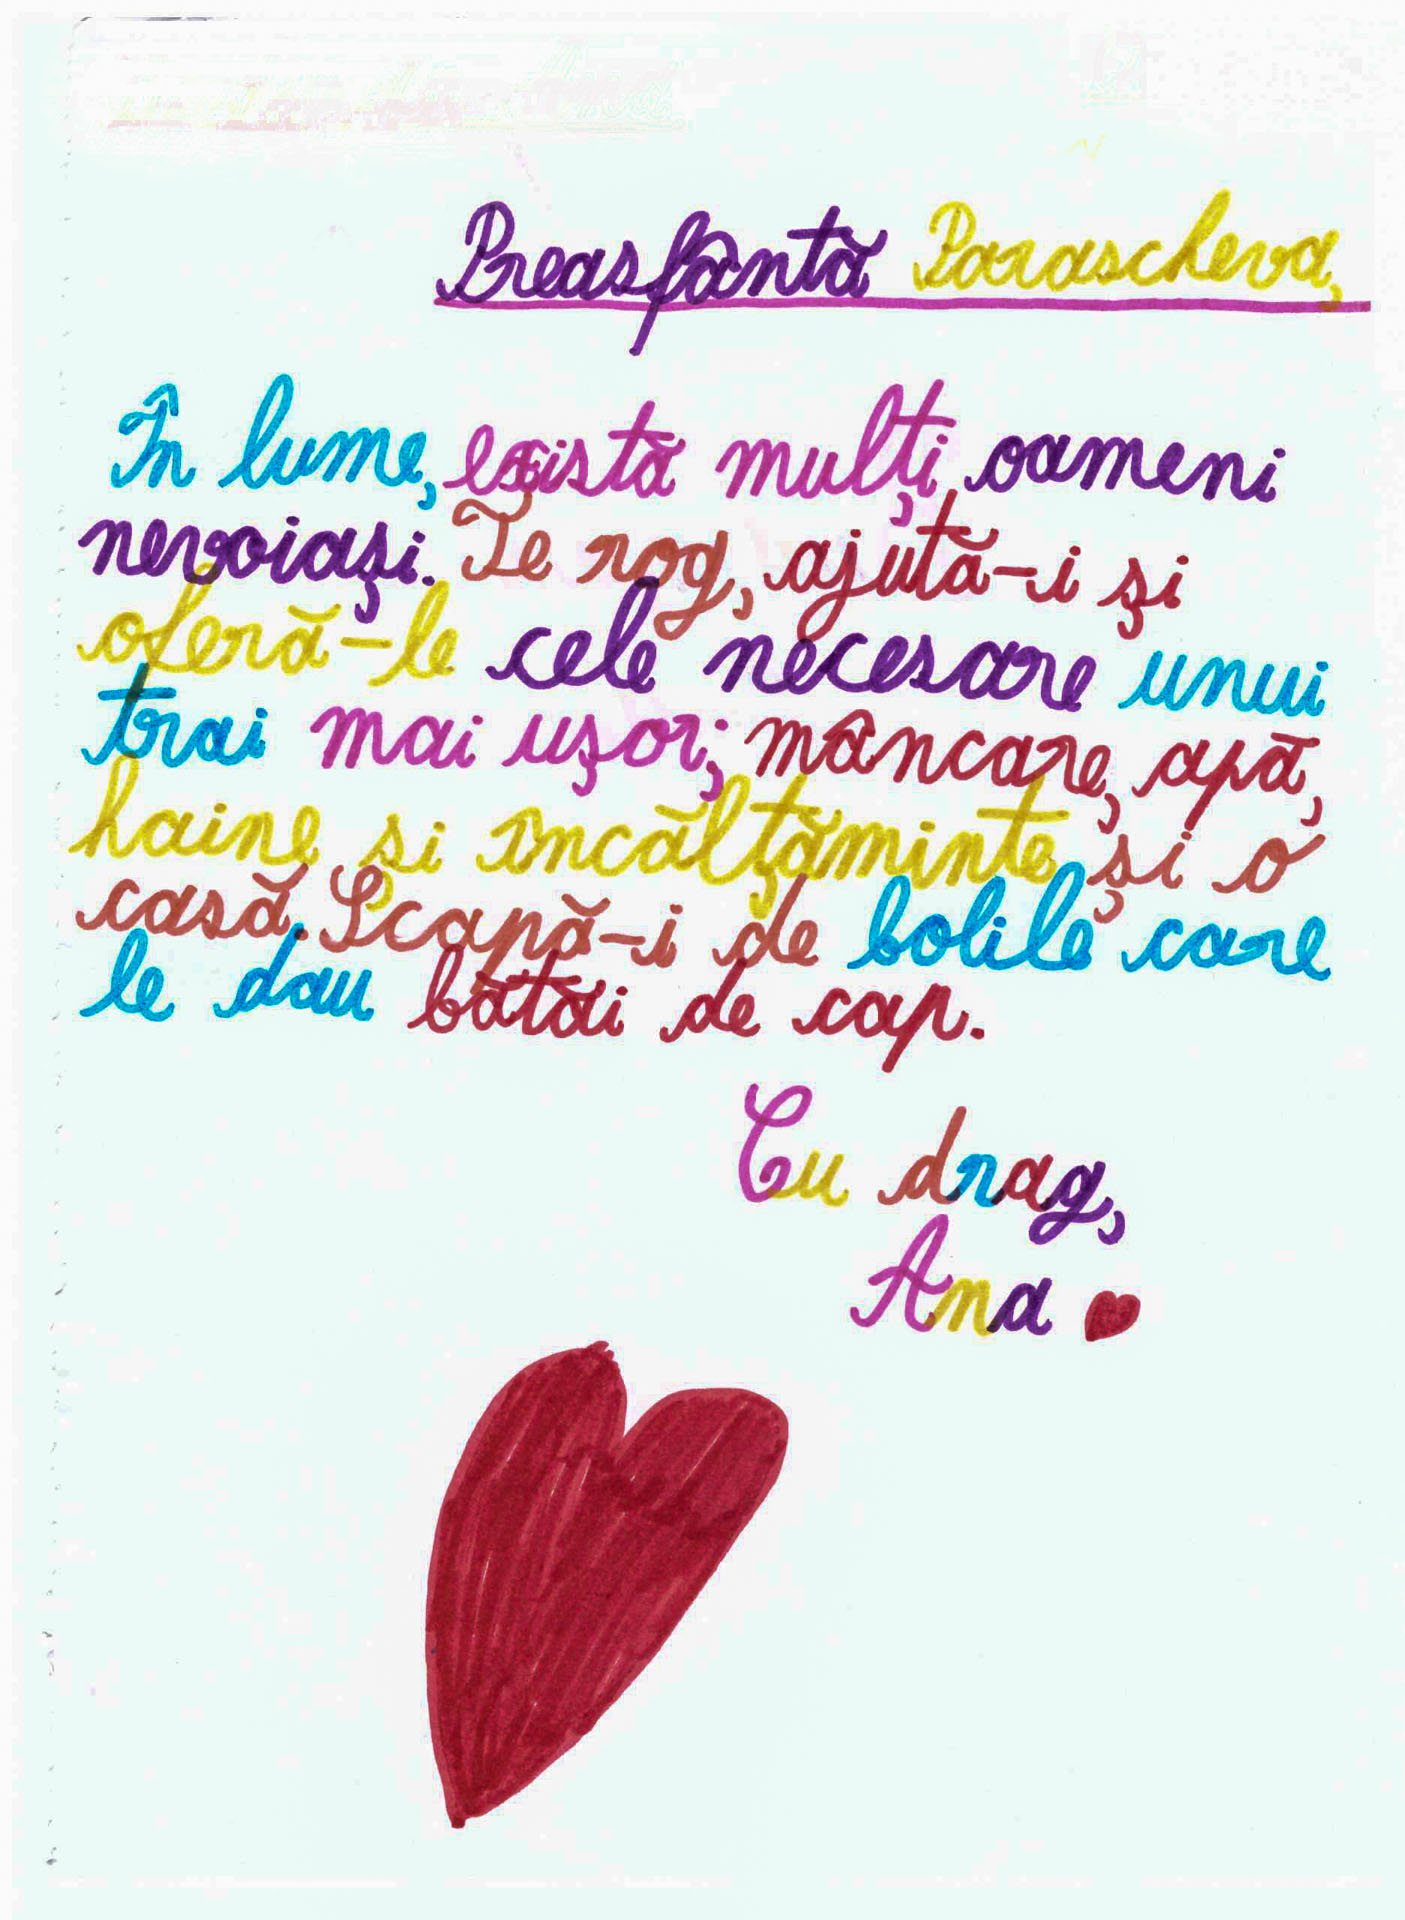 Preasfântă Parascheva,
În lume, există mulți oameni
nevoiași. Te rog, ajută-i și
oferă-le cele necesare unui
trai mai ușor; mâncare, apă,
haine și încălțăminte și o
casă. Scapă-i de bolile care
le dau bătăi de cap.
Cu drag,
Ana